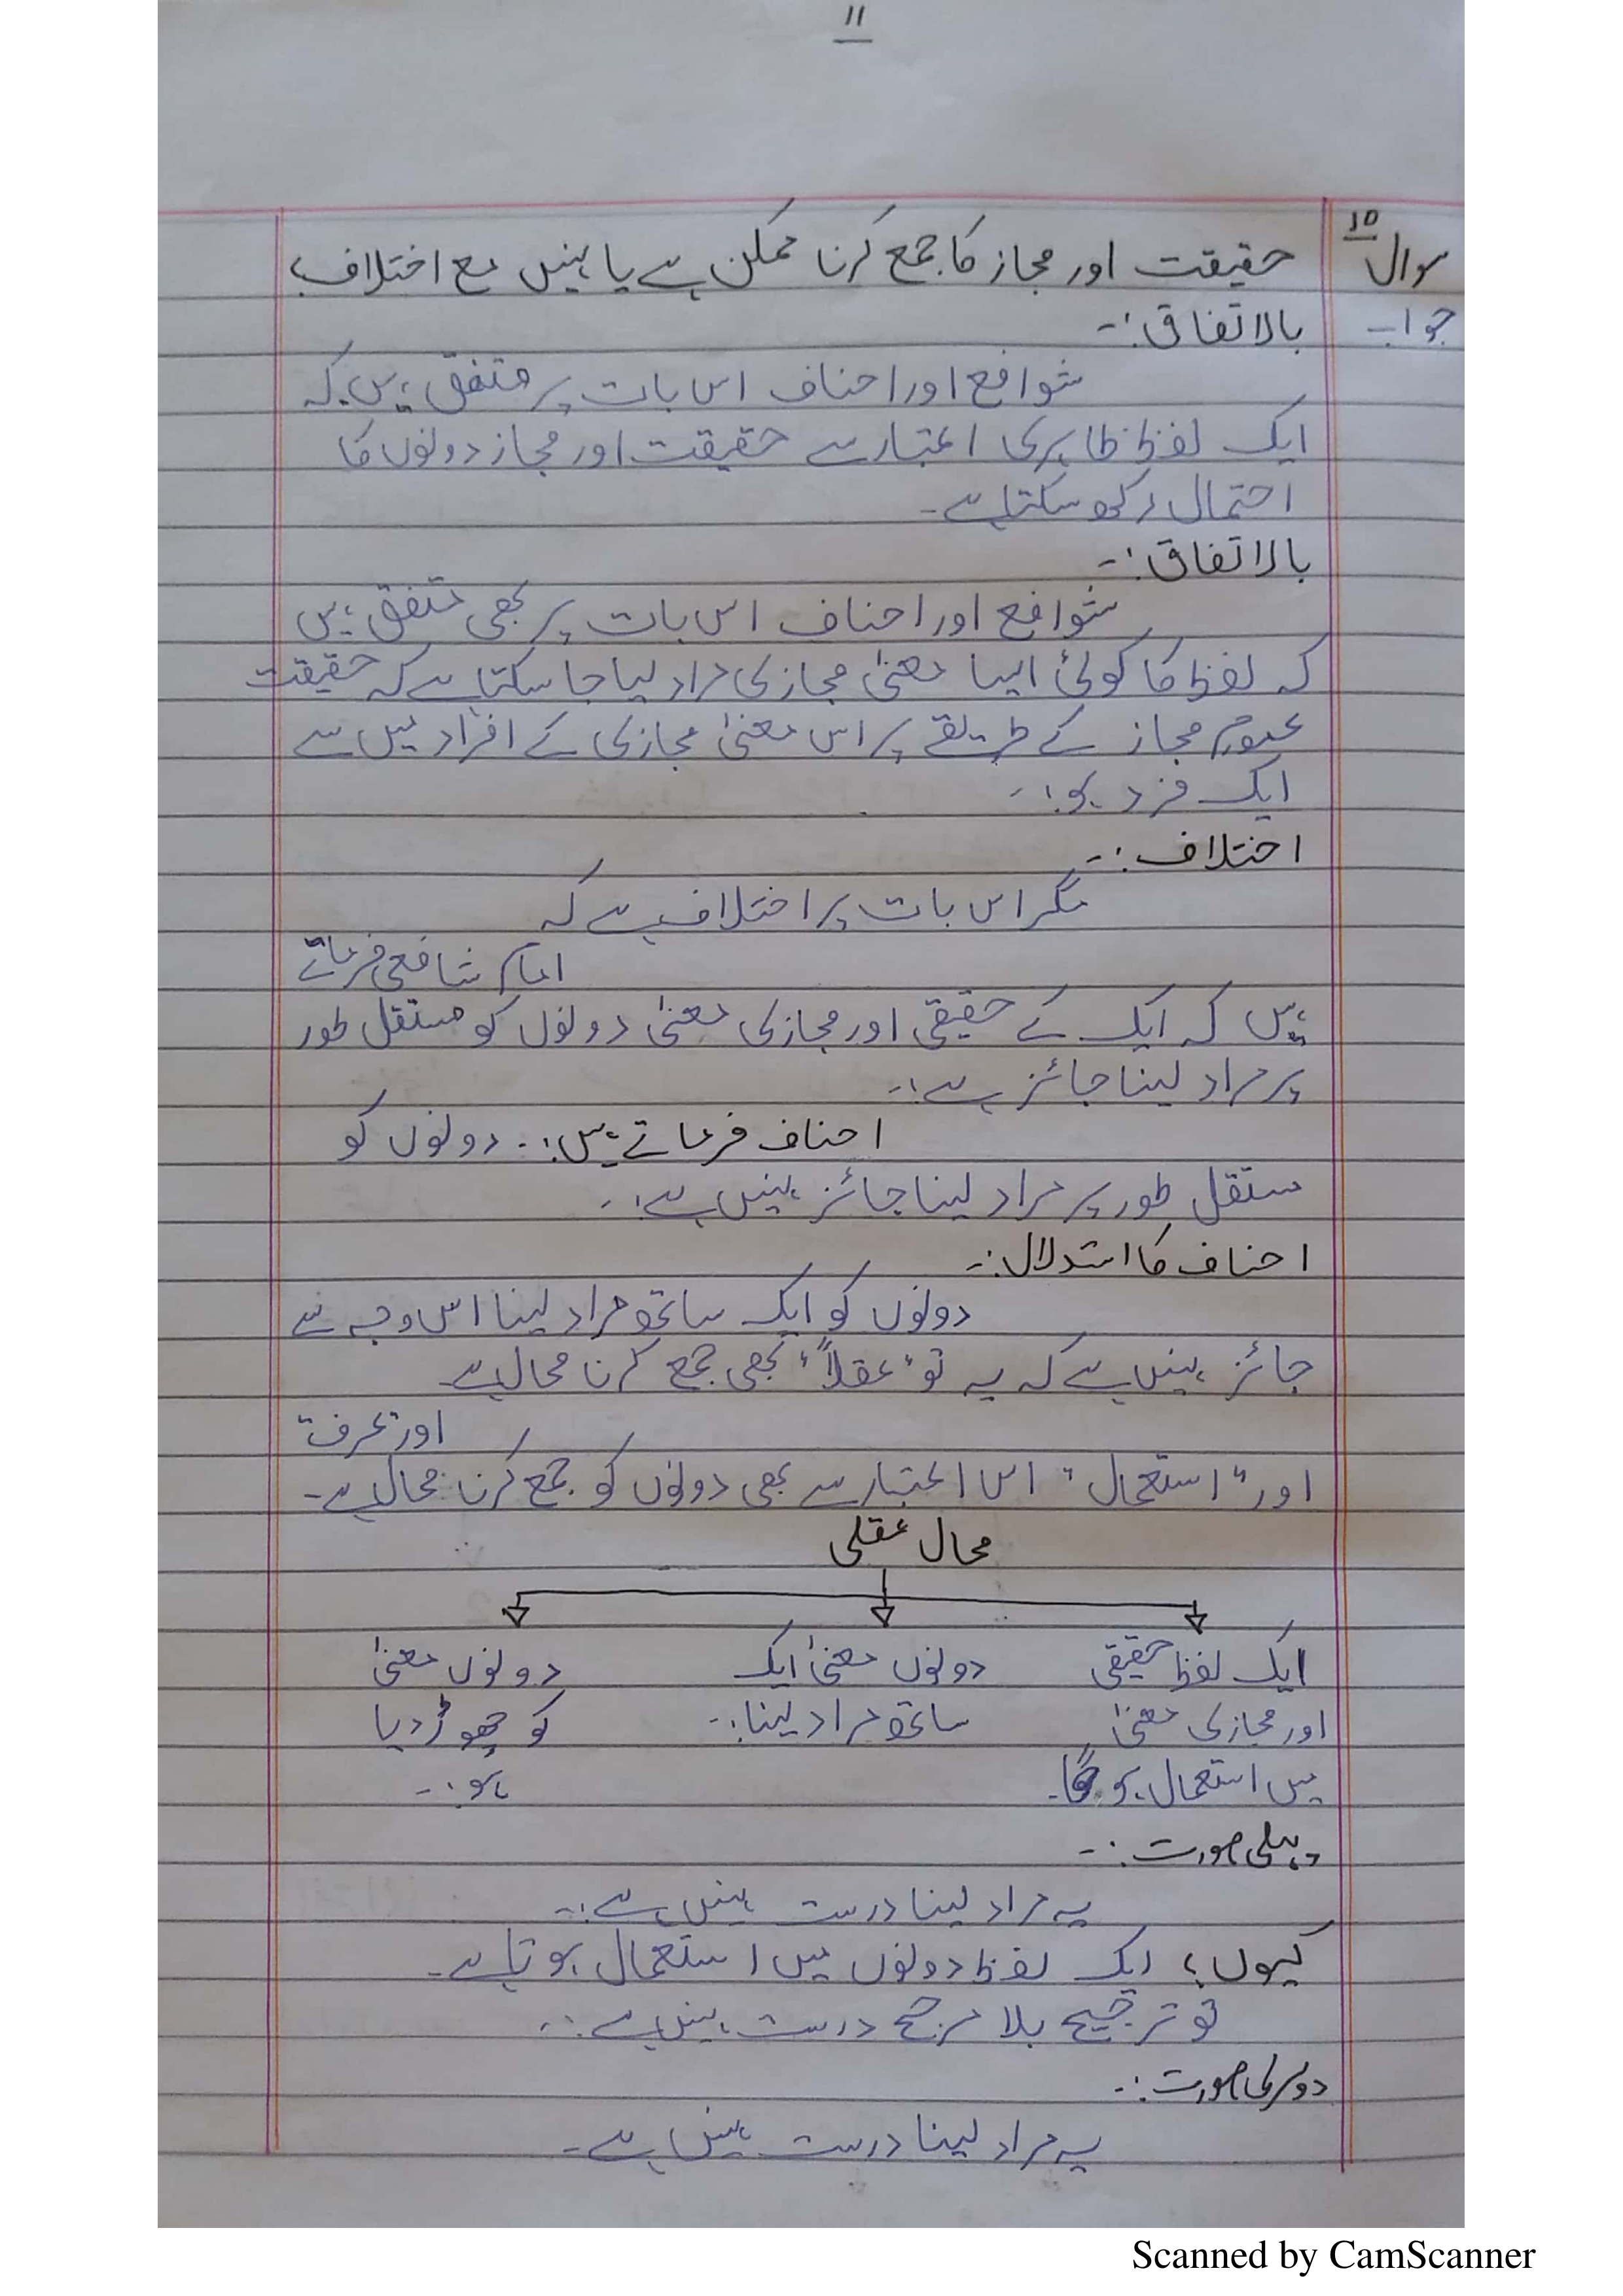 11
سوال 10 حقیقت اور مجاز کا جمع کرنا ممکن ہے یا نہیں مع اختلاف
جواب بالاتفاق:-
شوافع اور احناف اس بات پر متفق ہیں کہ
ایک لفظ ظاہری اعتبار سے حقیقت اور مجاز دونوں کا
احتمال رکھ سکتا ہے۔
بالاتفاق:-
شوافع اور احناف اس بات پر بھی متفق ہیں
کہ لفظ کا کوئی ایسا معنیٰ مجازی مراد لیا جا سکتا ہے کہ حقیقت
عموم مجاز کے طریقے پر اس معنیٰ مجازی کے افراد میں سے
ایک فرد ہو:-
اختلاف:-
مگر اس بات پر اختلاف ہے کہ
امام شافعی فرماتے
ہیں کہ ایک کے حقیقی اور مجازی معنیٰ دونوں کو مستقل طور
پر مراد لینا جائز ہے:-
احناف فرماتے ہیں:- دونوں کو
مستقل طور پر مراد لینا جائز نہیں ہے:-
احناف کا استدلال:-
دونوں کو ایک ساتھ مراد لینا اس وجہ سے
جائز نہیں ہے کہ یہ تو "عقلاً" بھی جمع کرنا محال ہے
اور عرف
اور "استعمال" اس اعتبار سے بھی دونوں کو جمع کرنا محال ہے۔
محال عقلی
ایک لفظ حقیقی دونوں معنیٰ ایک دونوں معنیٰ
اور مجازی معنیٰ ساتھ مراد لینا:- کو چھوڑ دیا
میں استعمال ہو گا۔ ہو:-
پہلی صورت:-
یہ مراد لینا درست نہیں ہے:-
کیوں؛ ایک لفظ دونوں میں استعمال ہوتا ہے۔
تو ترجیح بلا مرجح درست نہیں ہے:-
دوسری صورت:-
یہ مراد لینا درست نہیں ہے۔
Scanned by CamScanner